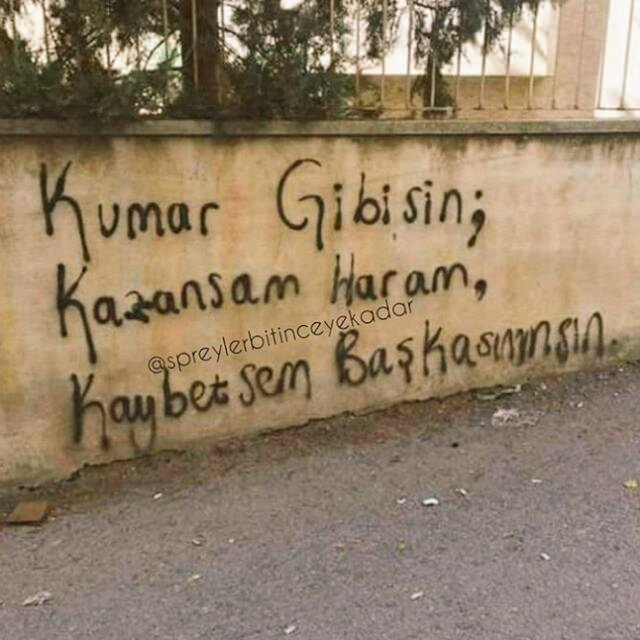 Kumar Gibisin;
Kazansam Haram,
@spreylerbitinceyekadar
Kaybetsem Başkasınınsın.